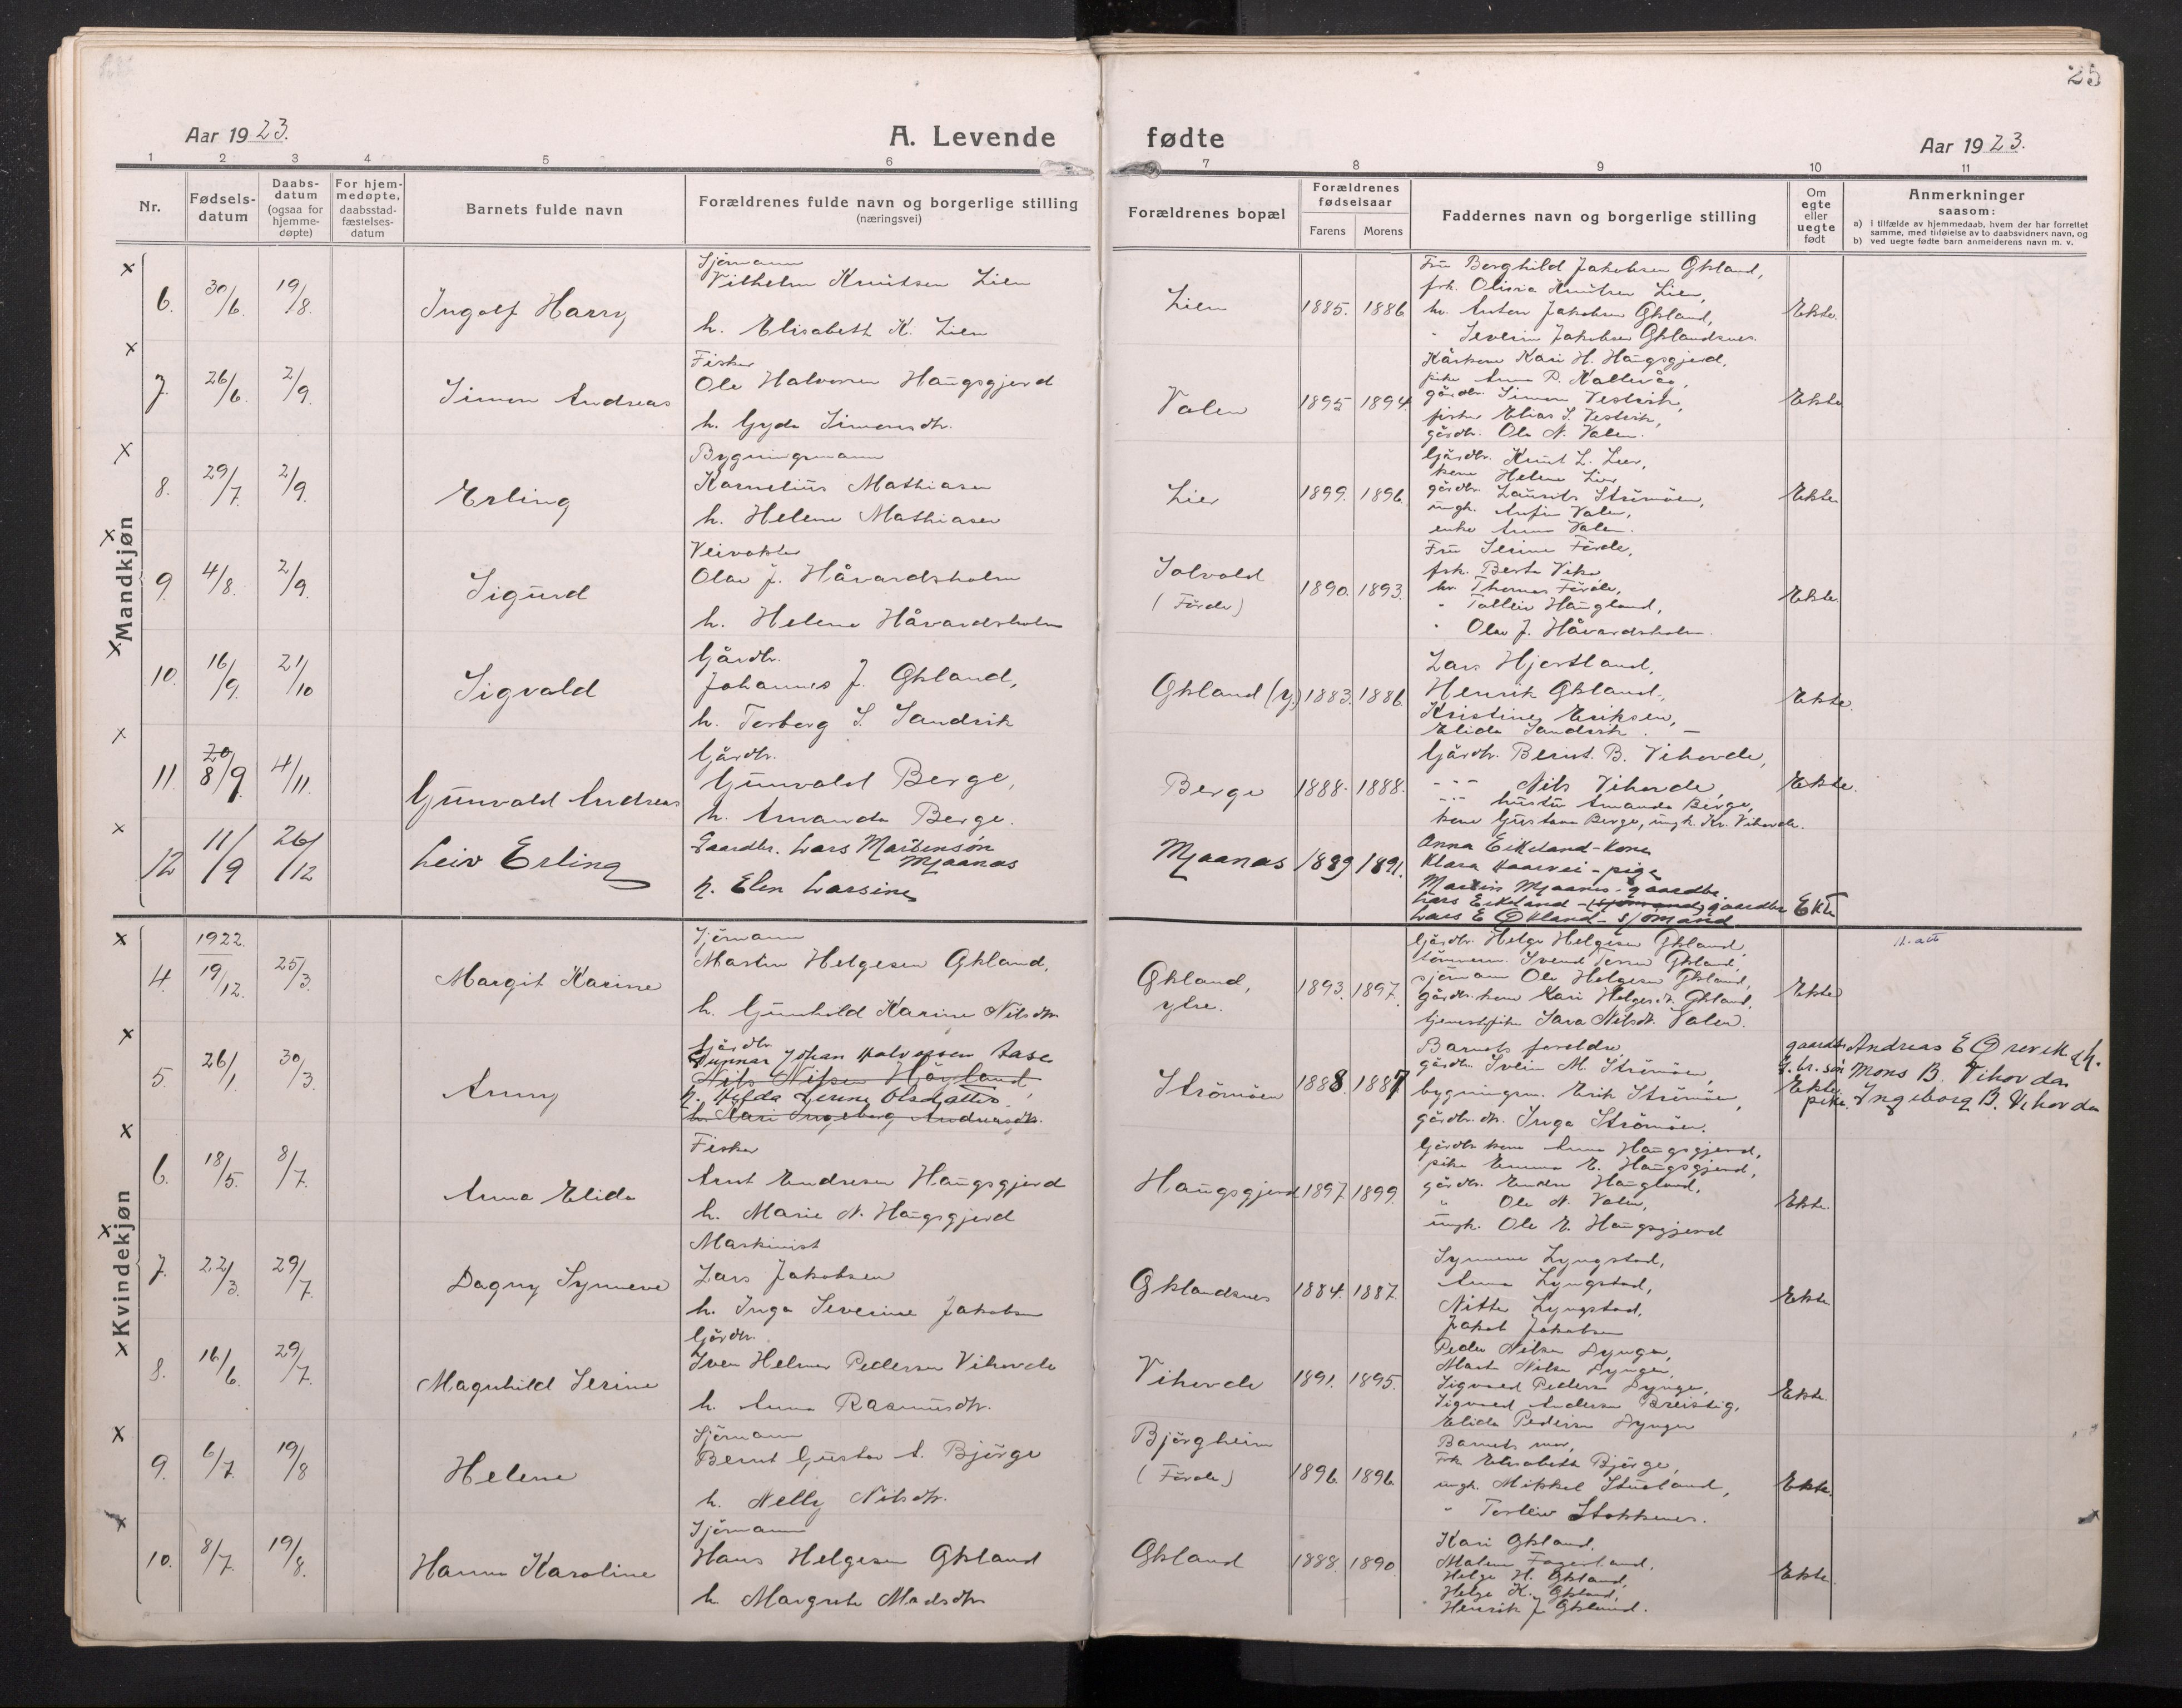 25
Aar 1923.
A. Levende
fødte
Aar 1923.
1 2 3 4 5 6 7 8 9 10 11
Nr.
Fødsels-
datum
Daabs-
datum
(ogsaa for
hjemme-
døpte)
For hjem-
medøpte,
daabsstad-
fæstelses-
datum
Barnets fulde navn
Forældrenes fulde navn og borgerlige stilling
(næringsvei)
Forældrenes bopæl
Forældrenes
fødselsaar
Farens Morens
Faddernes navn og borgerlige stilling
Om
egte
eller
uegte
født
Anmerkninger
saasom:
a) I tilfælde av hjemmedaab, hvem der har forrettet
samme, med tilføielse av to daabsvidners navn, og
b) ved uegte fødte barn anmelderens navn m. v.
Mandkjøn
6. 30/6. 19/8. Ingolf Harry
Sjømann
Vilhelm Knutsen Lien
h. Elisabeth K. Lien
Lien 1885. 1886
Fru Borghild Jakobsen Økland,
frk. Olivia Knutsen Lien,
hr. Anton Jakobsen Økland,
" Severin Jakobsen Øklandsnes.
Ekte.
7. 26/6. 2/9. Simon Andreas
Fisker
Ole Halvorsen Haugsgjerd
h. Gyda Simonsdtr.
Valen 1895 1894.
Kårkone Kari H. Haugsgjerd,
pike Anna P. Kallevåg,
gårdbr. Simon Vestvik,
fisker Elias S. Vestvik,
gårdbr. Ola N. Valen.
Ekte
8. 29/7. 2/9. Erling
Bygningsmann
Kornelius Mathiasen
h. Helene Mathiasen
Lier 1899. 1896.
Gårdbr. Knut L. Lier,
kone Helene Lier
gårdbr. Laurits Strömöen,
ungk. Arfin Valen,
enke Anna Valen.
Ekte
9. 4/8. 2/9. Sigurd
Veivokter
Olav J. Håvardsholm
h. Helene Håvardsholm
Solvold
(Förde)
1890. 1893.
Fru Serine Förde,
frk. Berta Vika
hr. Thomas Förde,
" Tolleiv Haugland,
" Olav J. Håvardsholm.
Ekte.
10. 16/9. 21/10 Sigvald
Gårdbr.
Johannes J. Økland,
h. Torborg S. Sandvik
Økland (y.) 1883. 1886.
Lars Hjortland,
Henrik Økland,
Kristine Eriksen,
Elida Sandvik. —
Ekte.
11. 20 8/9. 4/11. Gunvald Andreas
Gårdbr.
Gunvald Berge,
h. Amanda Berge.
Berge 1888. 1888.
Gårdbr. Bernt. B. Vihovde,
" Nils Vihovde,
" hustru Amanda Berge,
kone Gustava Berge, ungk. Kr. Vihovde.
Ekte.
12 11/9 26/12 Leiv Erling
Gaardbr. Lars Martensøn
Mjaanes
h. Elen Larsine
Mjaanes 1889 1891.
Anna Eikeland - Kone
Klara Haarvei - pige
Martin Mjaanes - gaardbr.
Lars Eikeland - (sjømand) gaardbr
Lars E Økland - sjømand
Ekte
Kvindekjøn
1922.
4. 19/12. 25/3. Margit Karine
Sjømann
Martin Helgesen Økland,
h. Gunhild Karine Nilsdtr.
Økland,
ytre.
1893. 1897.
Gårdbr. Helge Helgesen Økland
sjömann Ole Helgesen Økland,
gårdbr. kone Kari Helgesdtr. Økland,
tjenestepike Sara Nilsdtr. Valen.
Ekte
5. 26/1. 30/3. Anny
Gårdbr.
Gunnar Johan Halvorsen Aase
Nils Nilsen Höyland
h. Hilda Serine Olsdatter
h. Kari Ingeborg Andreasdtr.
Strömöen 1888. 1887
Barnets foreldre
gårdbr. Svein M. Strömöen,
bygningsm. Erik Strömöen,
gårdbr. dtr. Inga Strömöen.
Ekte
gaardbr Andreas E Ørevik
g.br. søn Mons B. Vihovden
pike. Ingeborg B. Vihovden
6. 18/5. 8/7. Anna Elida
Fisker
Arnt Endresen Haugsgjerd
h. Marie N. Haugsgjerd
Haugsgjerd 1897. 1899.
Gårdbr. kone Anna Haugsgjerd,
pike Emma E. Haugsgjerd,
gårdbr. Endre Haugland,
" Ole N. Valen,
ungk. Ole E. Haugsgjerd
Ekte.
7. 22/3. 29/7. Dagny Synneve
Maskinist
Lars Jakobsen
h. Inga Severine Jakobsen
Øklandsnes 1884. 1887.
Synneve Lyngstad,
Anna Lyngstad,
Nitter Lyngstad,
Jakob Jakobsen
Ekte.
8. 16/6. 29/7. Magnhild Serine
Gårdbr.
Sven Helmer Pedersen Vihovde
h. Anna Rasmusdtr.
Vihovde 1891. 1895.
Peder Nilsen Dyngen,
Marta Nilsen Dyngen,
Sigvard Pedersen Dyngen,
Sigvard Andersen Breistig,
Elida Pedersen Dyngen
Ekte.
9. 6/7. 19/8 Helene
Sjømann
Bernt Gustav A. Bjørge
h. Nelly Nilsdtr.
Bjørgheim
(Förde)
1896. 1896.
Barnets mor,
Frk Elisabeth Bjørge,
ungk. Mikkel Stueland,
" Torleiv Stokkenes.
Ekte.
10. 8/7. 19/8. Hanna Karoline
Sjømann
Hans Helgesen Økland
h. Margrete Madsdtr
Økland 1888. 1890
Kari Økland,
Malene Fagerland,
Helge H. Økland,
Helge K. Økland,
Henrik J. Økland.
Ekte.